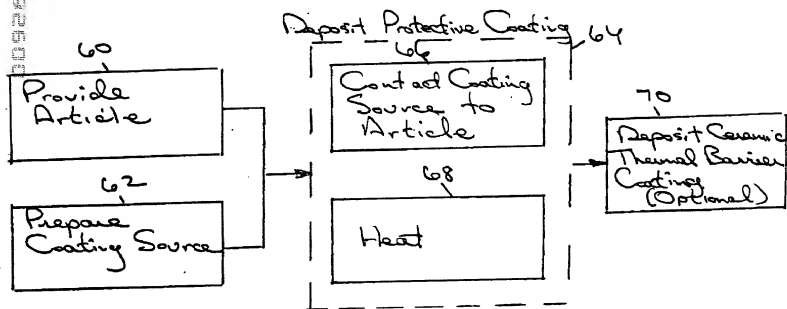 Deposit Protective Coating
64
60
Provide
Article
62
Prepare
Coating Source
66
Contact Coating
Source to
Article
68
Heat
70
Deposit Ceramic
Thermal Barrier
Coating
(Optional)